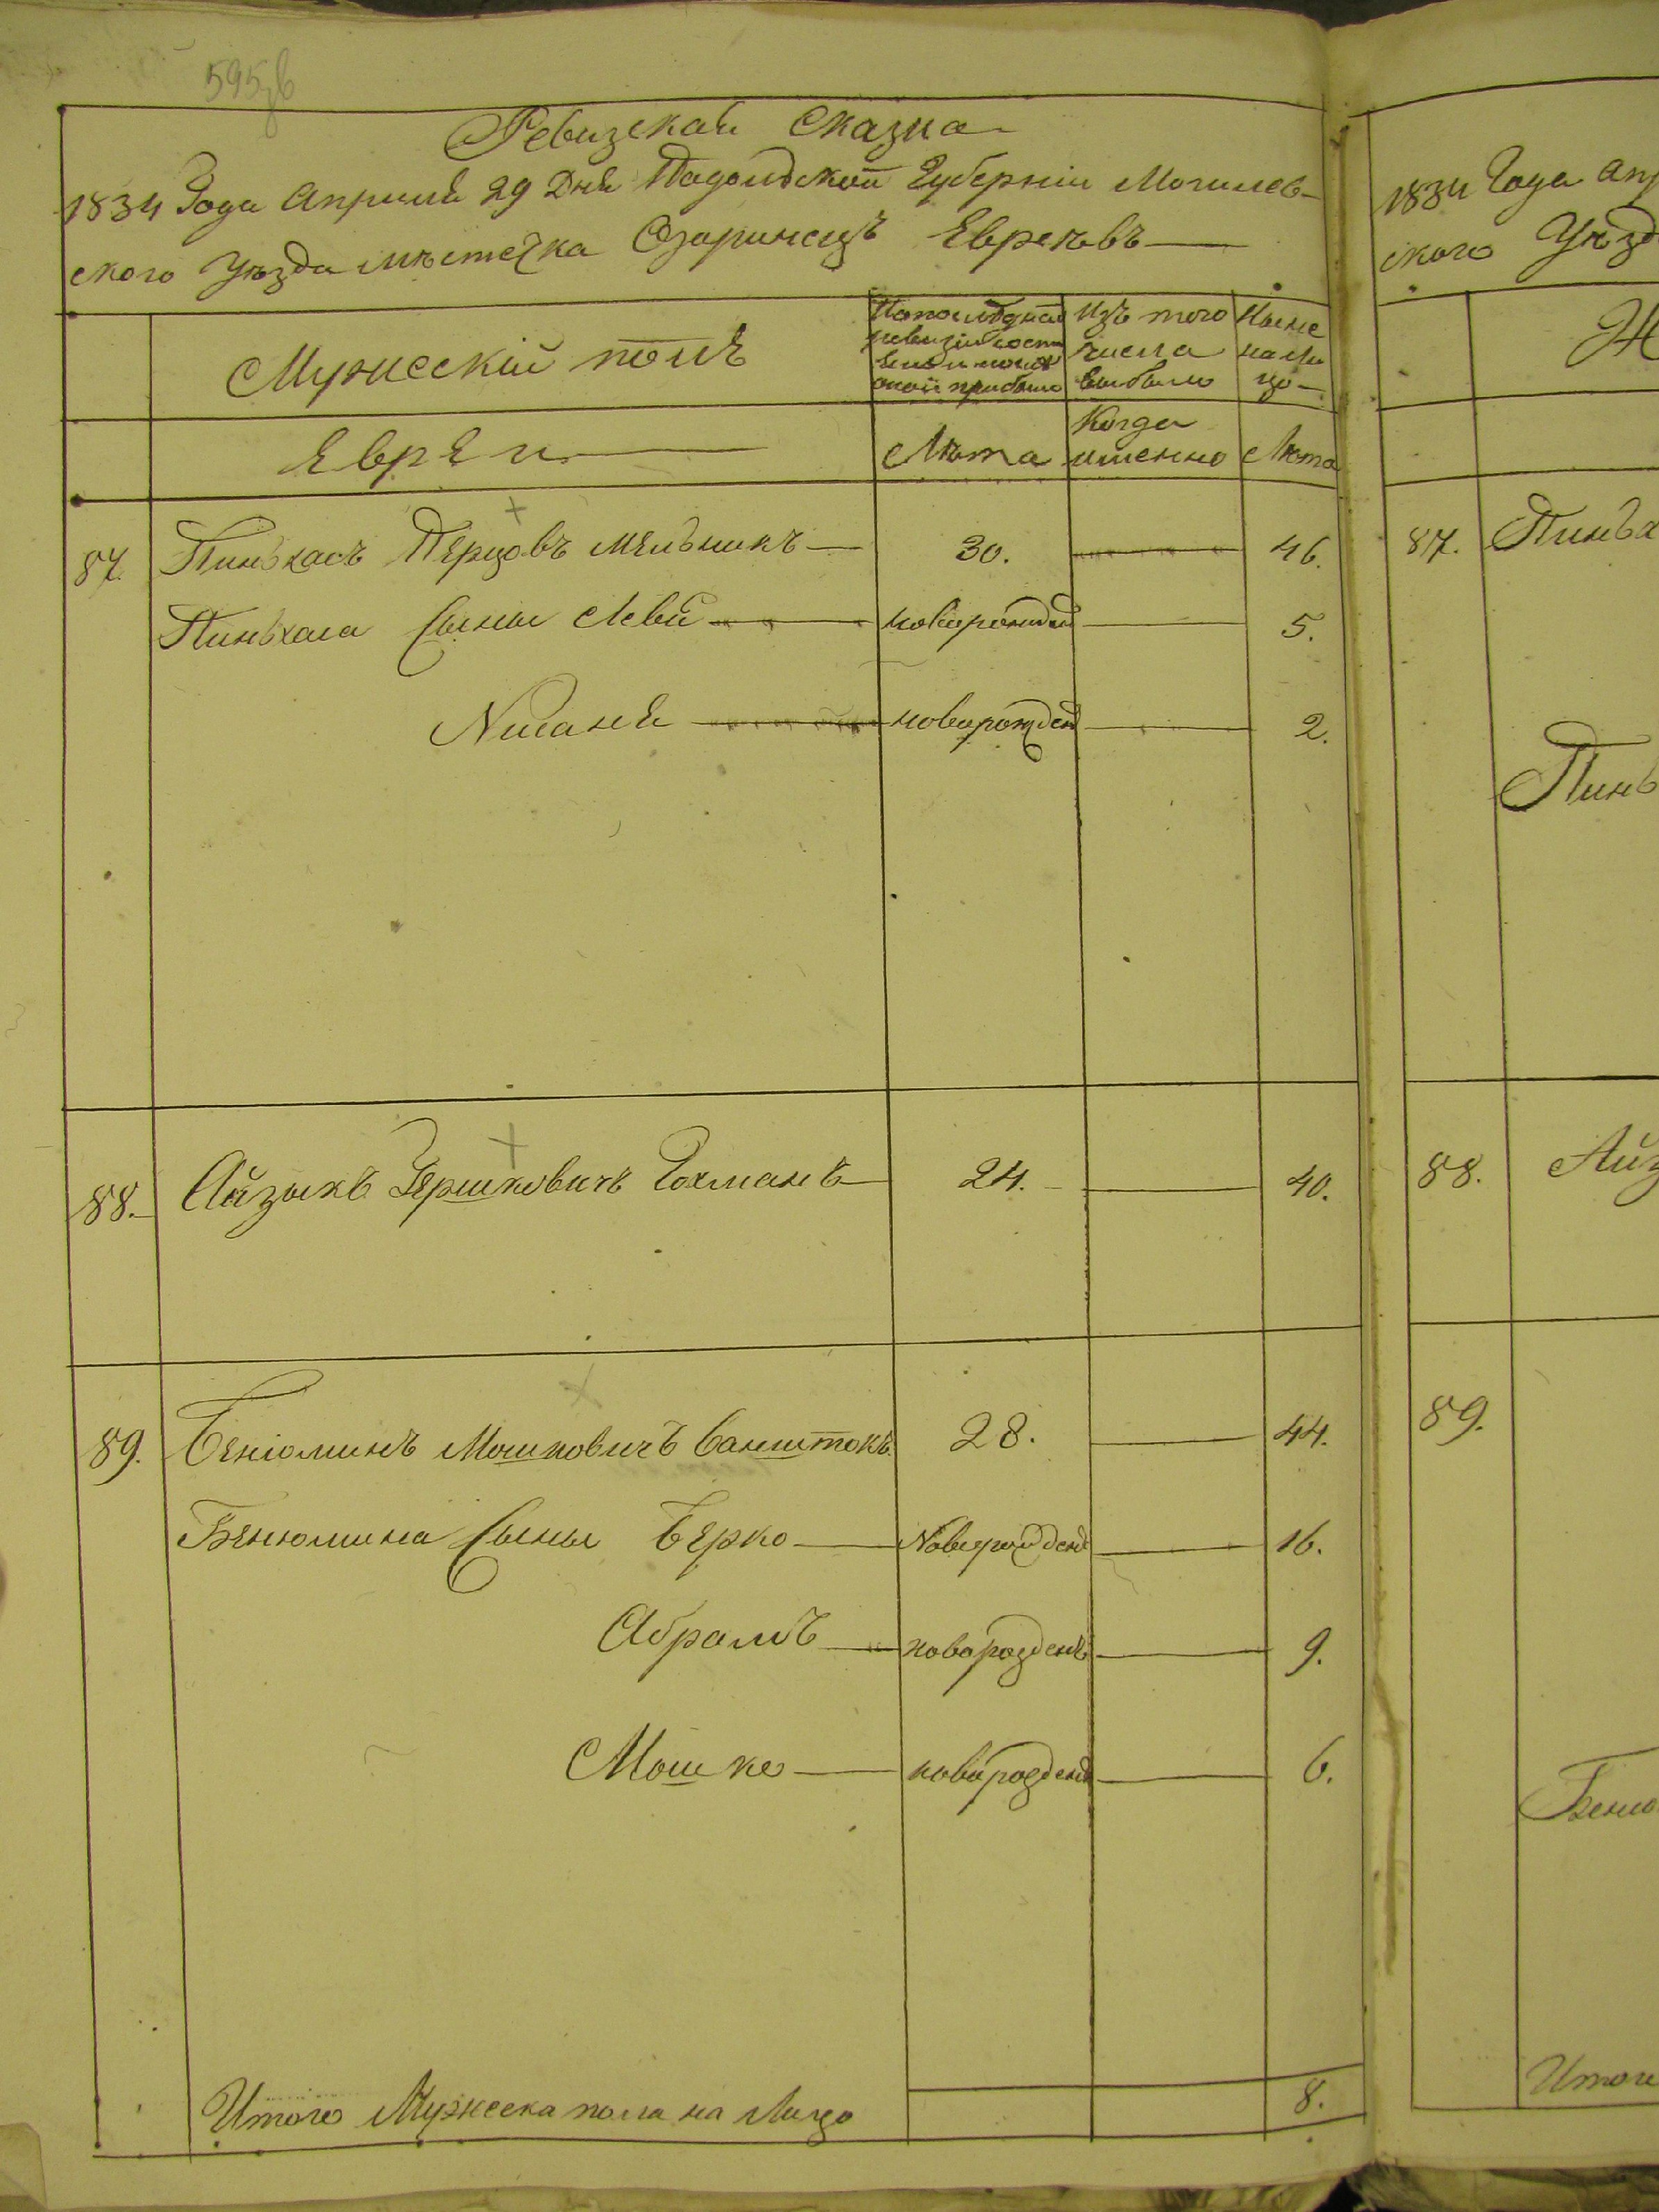 595
Ревизская Сказка
1834 Года Апреля 29 Дня Подольской Губерніи Могилев-
ского Уѣзда мѣстечка Озаринецъ Евреевъ
Мужескій полъ
По последней
ревизіи состо
яло и после
оной прибыло
Изъ того
числа
выбыло
Ныне
на ли
цо
Евреи
Лѣта
Когда
именно
Лѣта
87. Пиньхасъ Перцовъ Мельникъ 30. 46.
Пиньхаса Сыны Леви новорожден 5.
Nисанъ новорожден 2.
88. Айзыкъ Гершковичъ Гохманъ 24. 40.
89. Бенюминъ Мошковичъ Ванштокъ 28. 44.
Бенюмина Сыны Берко Nоворожденъ 16.
Абрамъ новорозденъ 9.
Мошко новорозденъ 6.
Итого Мужеска пола на Лицо 8.
1834 Года Апр
ского Уѣзд
Ж
87. Пиньх
Пинь
88. Айз
89.
Беню
Итого